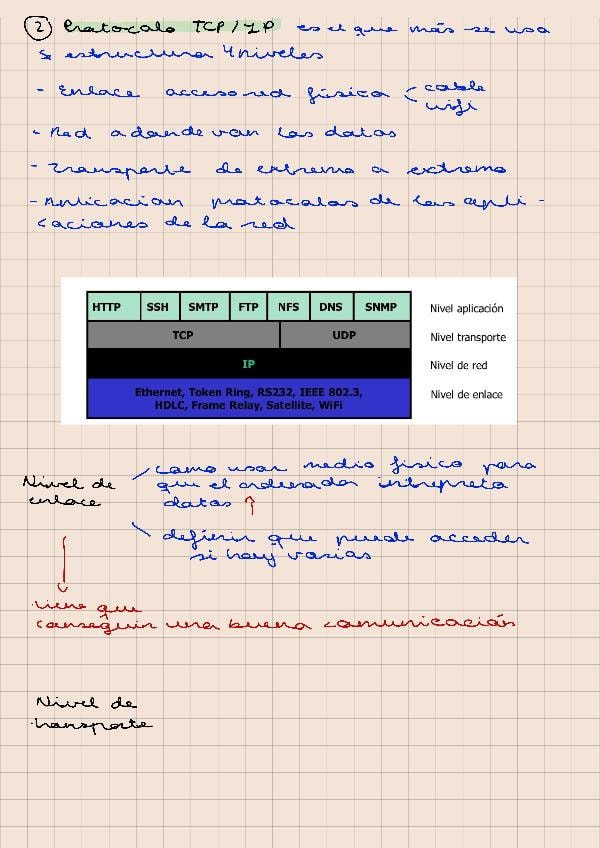 ② Protocolo TCP/IP es el que más se usa
↳ estructura 4 niveles
- Enlace acceso red física < cable
wifi
- Red a donde van los datos
- Transporte de extremo a extremo
- Aplicación protocolos de las apli-
caciones de la red
HTTP SSH SMTP FTP NFS DNS SNMP Nivel aplicación
TCP UDP Nivel transporte
IP Nivel de red
Ethernet, Token Ring, RS232, IEEE 802.3, Nivel de enlace
HDLC, Frame Relay, Satellite, WiFi
Nivel de
enlace
como usar medio físico para
que el ordenador intrepreta
datos ↑
definir que puede acceder
si hay varios
↓
tiene que
conseguir una buena comunicación
Nivel de
transporte